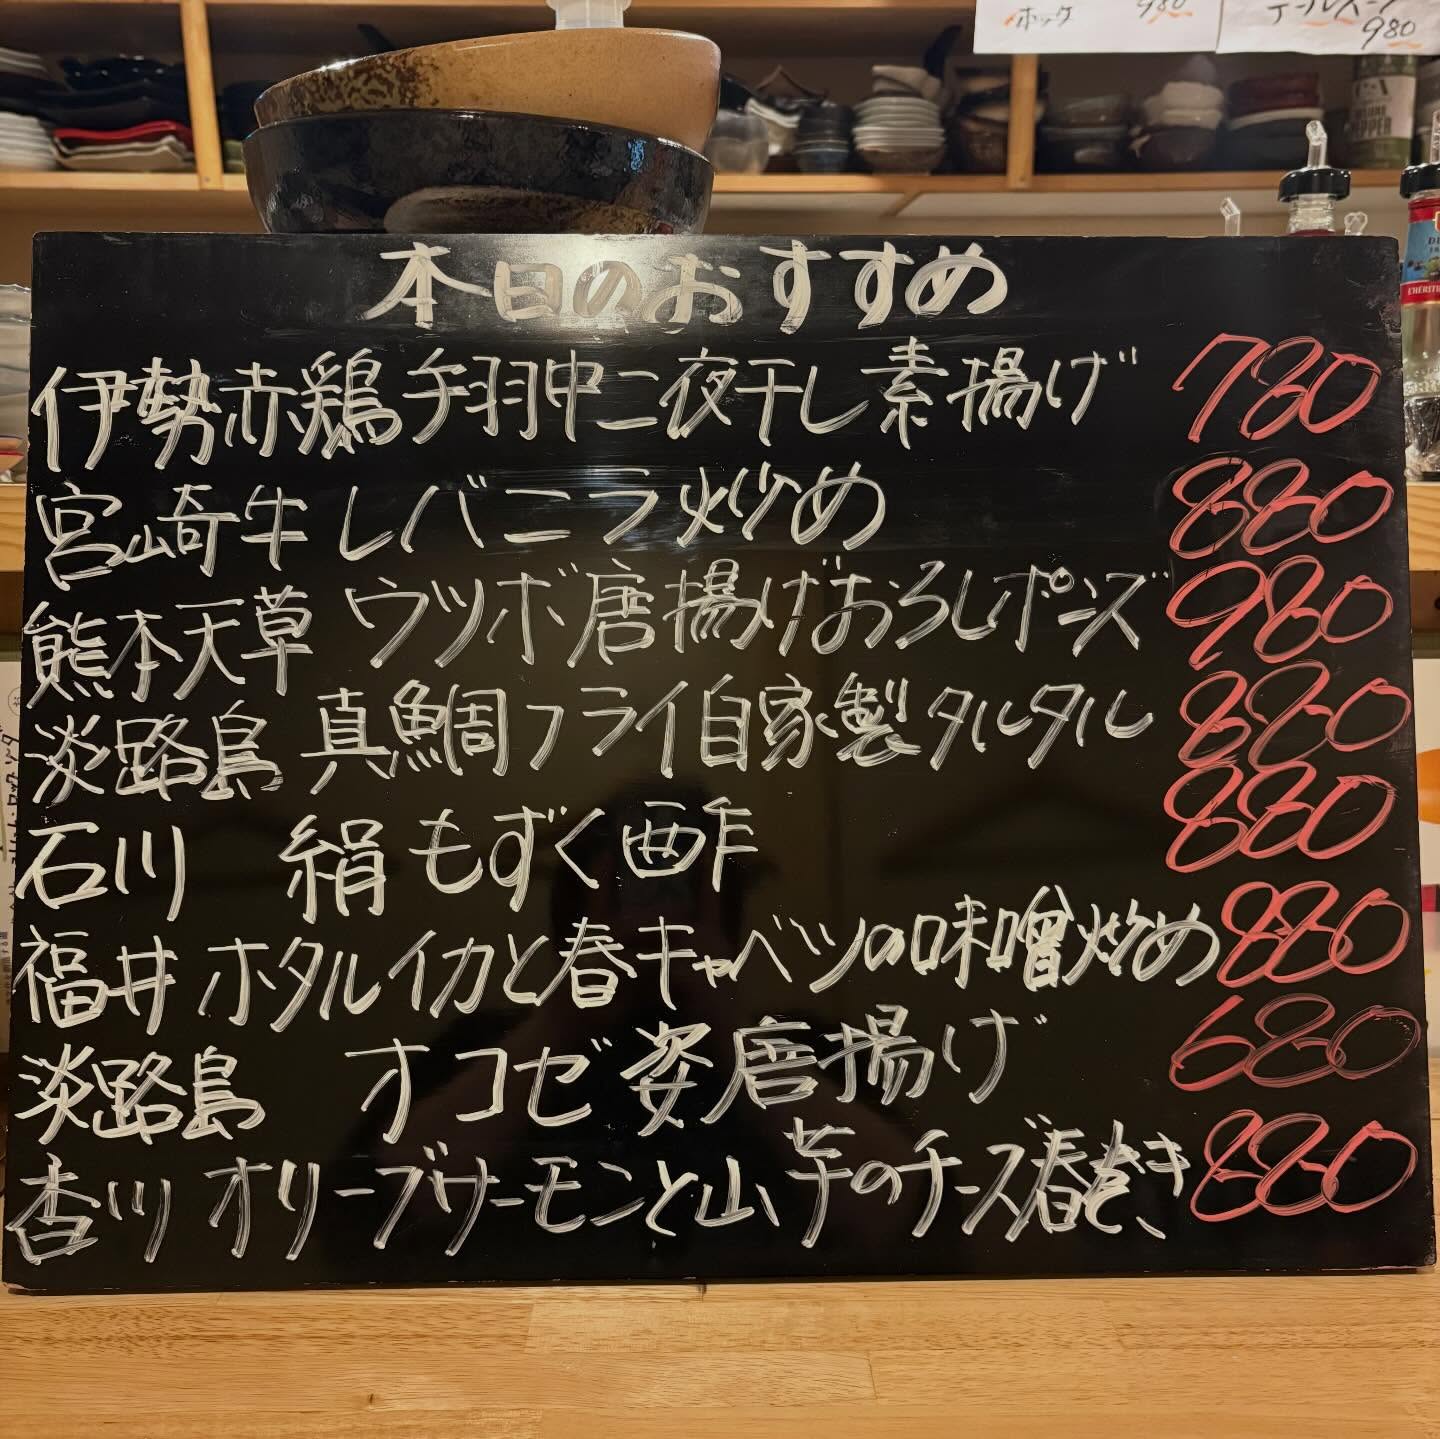 ホック 980
テールスープ 980
本日のおすすめ
伊勢赤鶏手羽中一夜干し素揚げ 780
宮崎牛レバニラ炒め 880
熊本天草 ウツボ唐揚げおろしポンズ 980
淡路島 真鯛フライ自家製タルタル 880
石川 絹もずく酢 880
福井 ホタルイカと春キャベツの味噌炒め 880
淡路島 オコゼ姿唐揚げ 680
香川 オリーブサーモンと山芋のチーズ春巻き 880